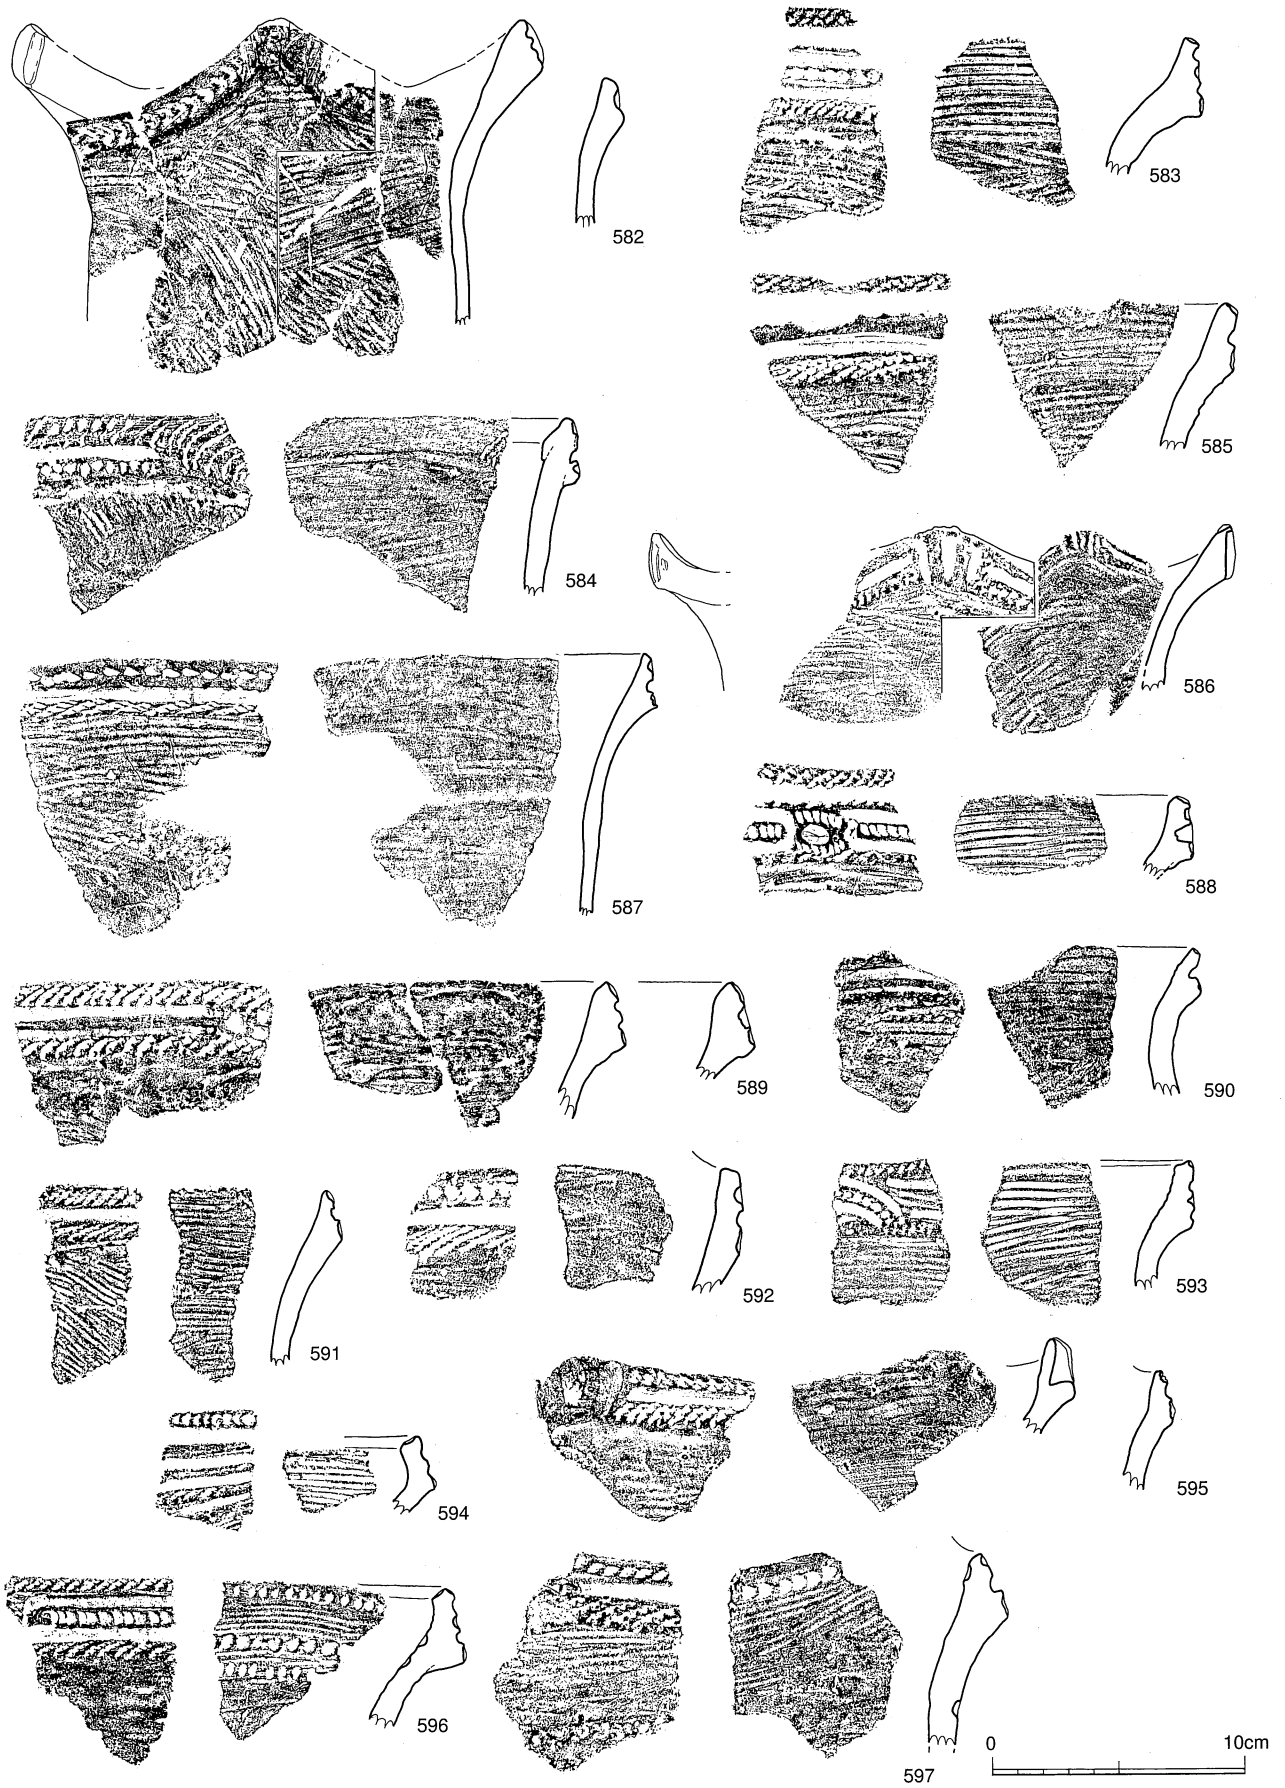 582
583
584
585
586
587
588
589
590
591
592
593
594
595
596
597
0 10cm